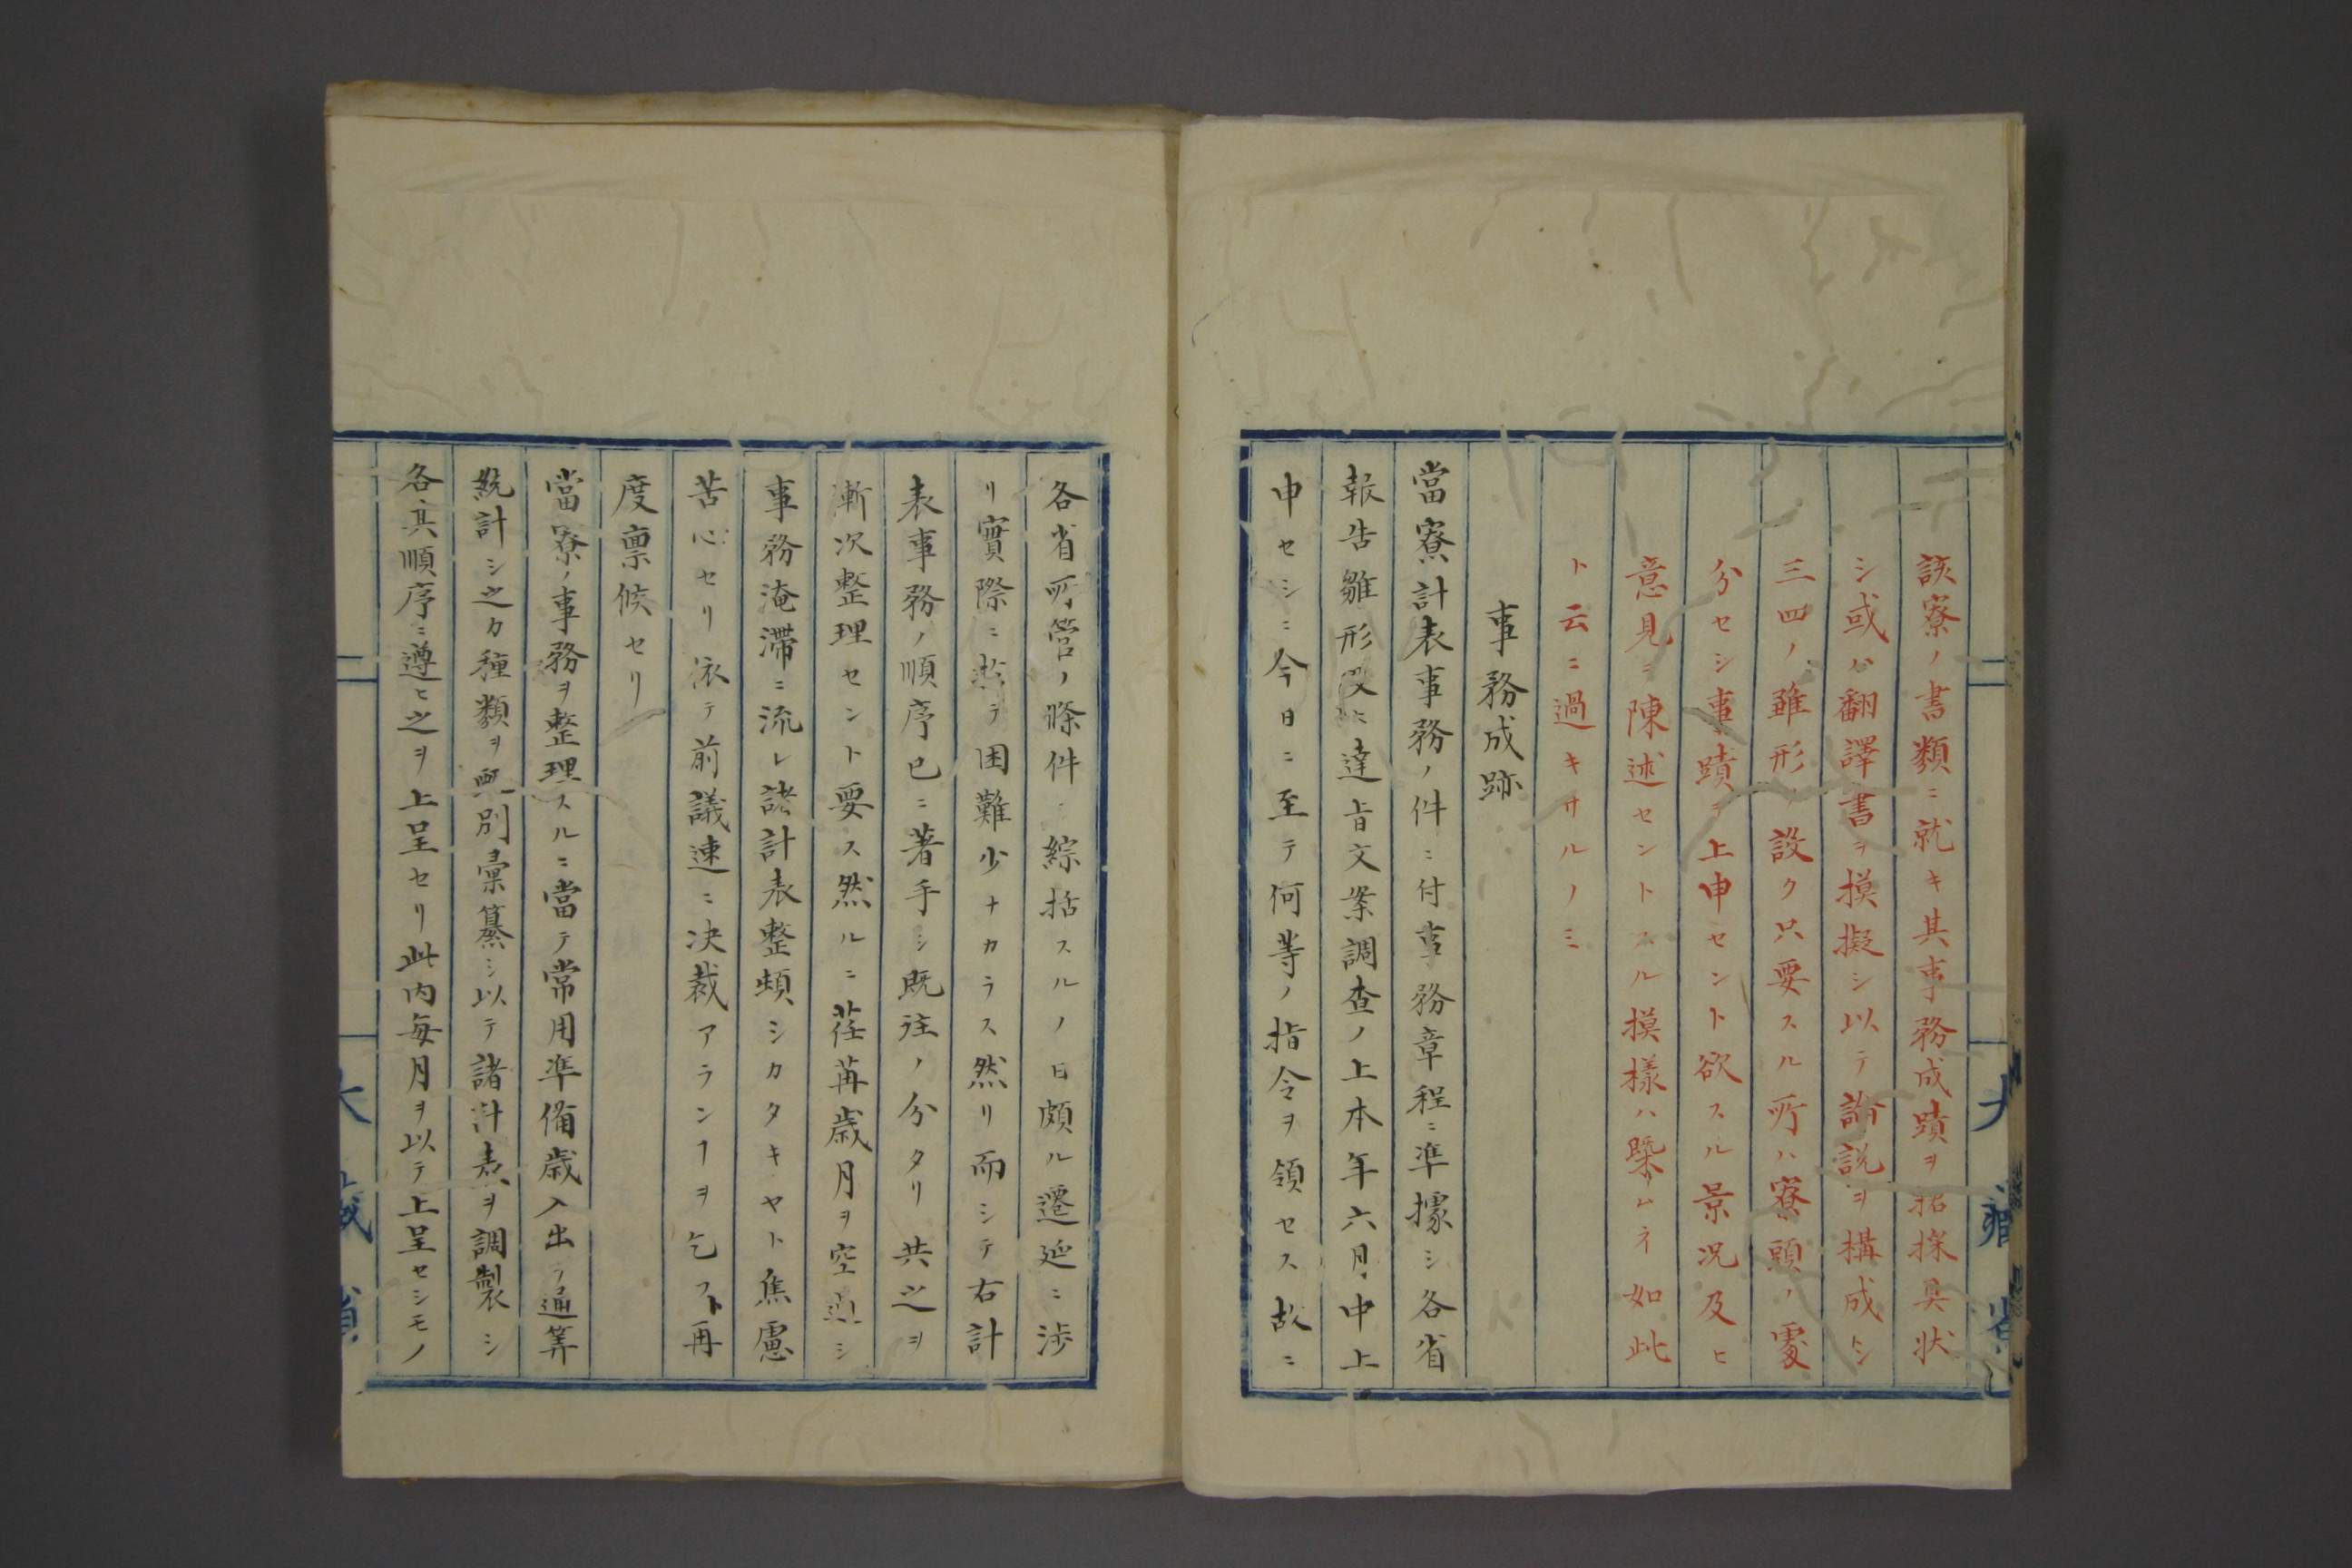 該寮ノ書類ニ就キ其事務成蹟ヲ招採具状
シ或ハ翻譯書ヲ摸擬シ以テ論説ヲ構成トシ
三四ノ雖形ヲ設ク只要スル所ハ寮頭ノ處
分セシ事蹟ヲ上申セント欲スル景况及ヒ
意見ヲ陳述セントスル摸樣ハ槩ムネ如此
ト云ニ過キサルノミ
事務成跡
當寮計表事務ノ件ニ付事務章程ニ準據シ各省
報告雛形及ヒ達㫖文案調查ノ上本年六月中上
申セシニ今日ニ至テ何等ノ指令ヲ領セス故ニ
各省所管ノ條件ヲ綜括スルノ日頗ル遷延ニ渉
リ實際ニ於テ困難少ナカラス然リ而シテ右計
表事務ノ順序已ニ著手シ既往ノ分タリ共之ヲ
漸次整理セント要ス然ルニ荏苒歳月ヲ空過シ
事務淹滯ニ流レ諸計表整頓シカタキヤト焦慮
苦心セリ依テ前議速ニ决裁アランヿヲ乞フト再
度禀候セリ
當寮ノ事務ヲ整理スルニ當テ常用準備歳入出ヲ通算
統計シ之カ種類ヲ甄別彙纂シ以テ諸計表ヲ調製シ
各其順序ニ遵ヒ之ヲ上呈セリ此内每月ヲ以テ上呈セシモノ
大藏省
大藏省